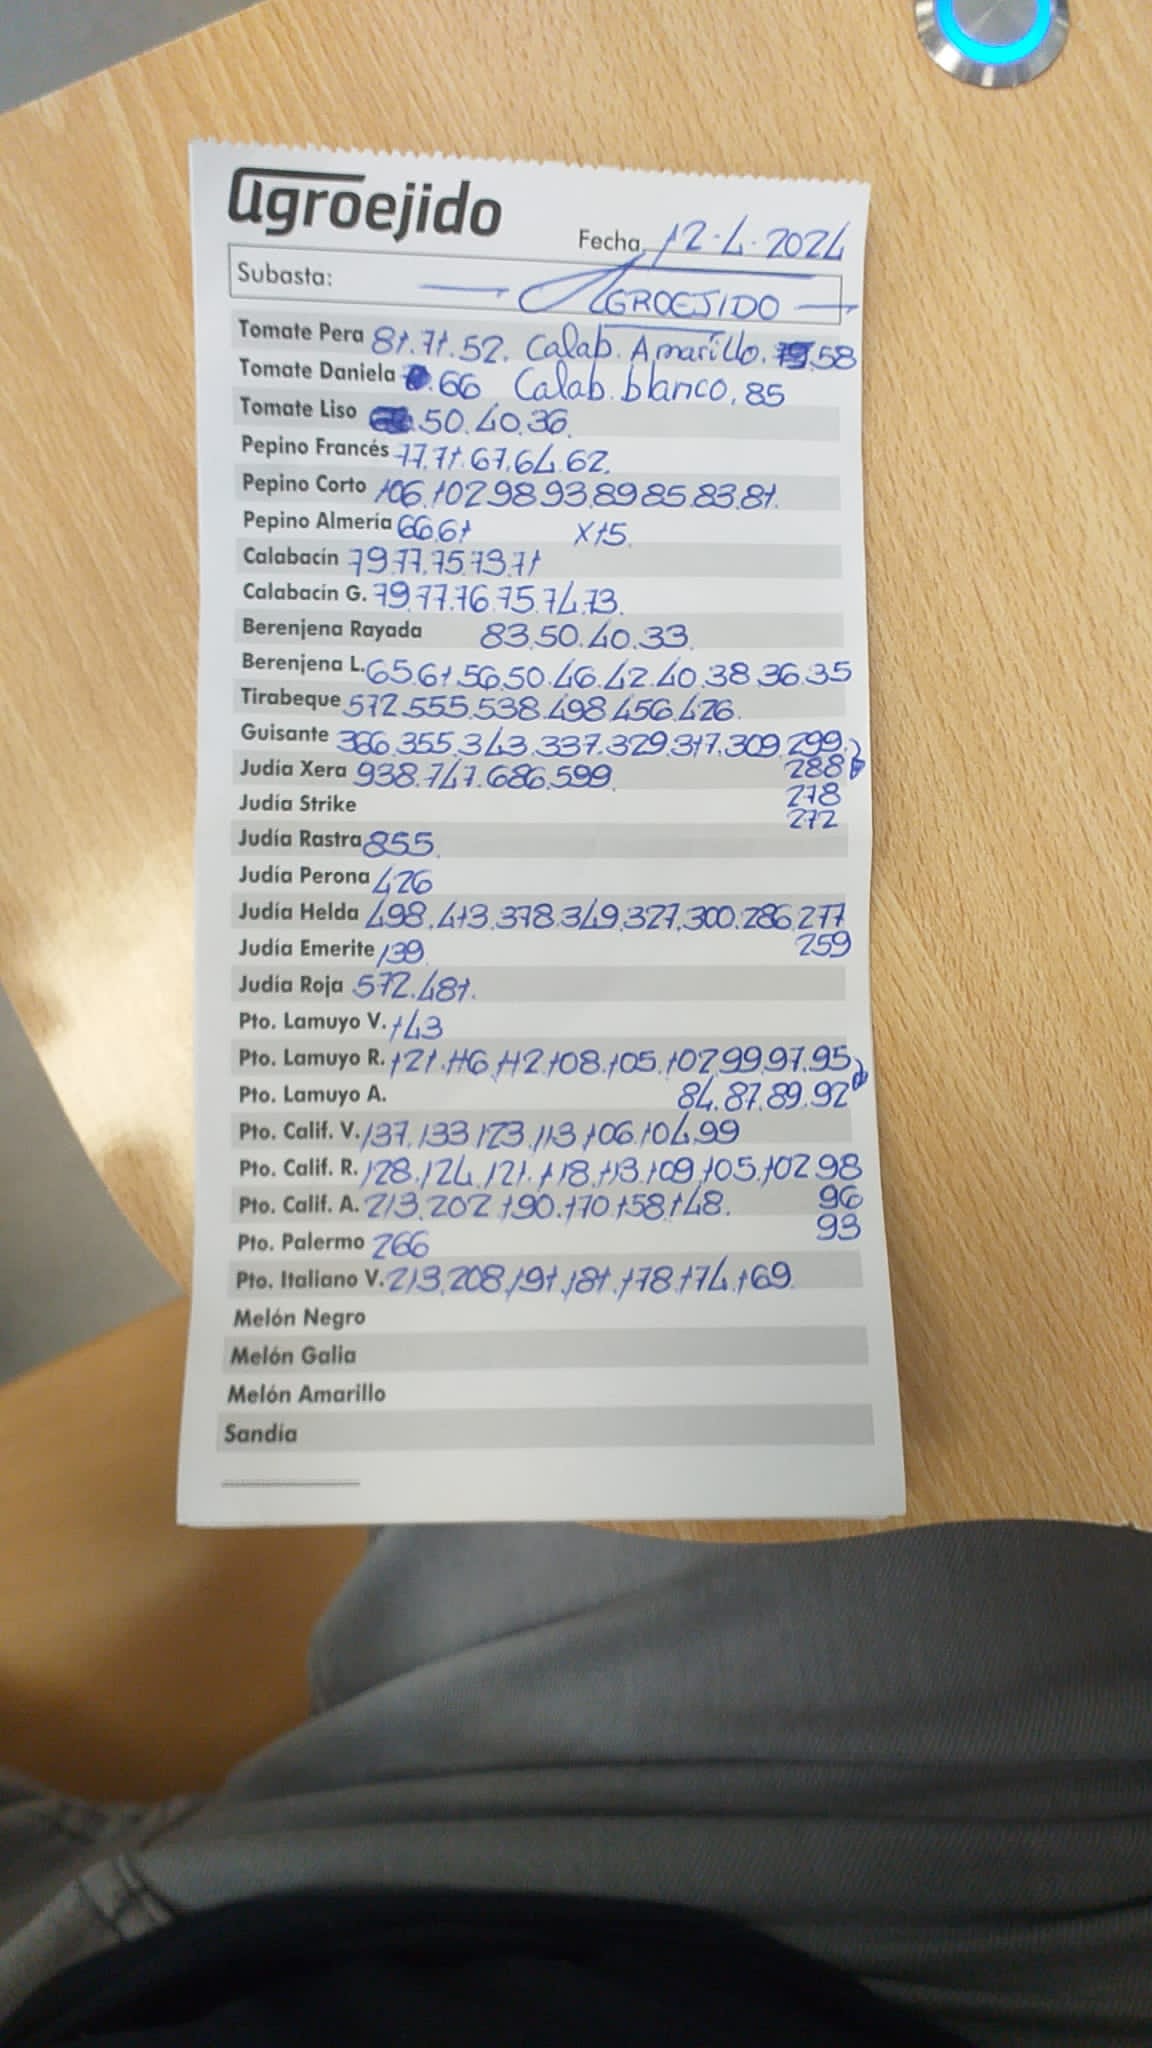 agroejido
Fecha 12-4-2024
Subasta: AGROEJIDO
Tomate Pera 81.71.52. Calab. Amarillo. 58
Tomate Daniela .66 Calab. blanco. 85
Tomate Liso .50.40.36.
Pepino Francés 77.71.67.64.62.
Pepino Corto 106.102.98.93.89.85.83.81.
Pepino Almería 66.61 X15.
Calabacín 79.77.75.73.71
Calabacín G. 79.77.76.75.74.73.
Berenjena Rayada 83.50.40.33.
Berenjena L. 65.61.56.50.46.42.40.38.36.35
Tirabeque 572.555.538.498.456.426.
Guisante 366.355.343.337.329.317.309.299.
288
Judía Xera 938.747.686.599.
278
Judía Strike
272
Judía Rastra 855.
Judía Perona 426
Judía Helda 498.413.378.349.327.300.286.277
259
Judía Emerite 139.
Judía Roja 572.481.
Pto. Lamuyo V. 143
Pto. Lamuyo R. 121.116.112.108.105.102.99.97.95
Pto. Lamuyo A. 84.87.89.92
Pto. Calif. V. 137.133.123.113.106.104.99
Pto. Calif. R. 128.124.121.118.113.109.105.102.98
96
Pto. Calif. A. 213.202.190.170.158.148.
93
Pto. Palermo 266
Pto. Italiano V. 213.208.191.181.178.174.169.
Melón Negro
Melón Galia
Melón Amarillo
Sandía